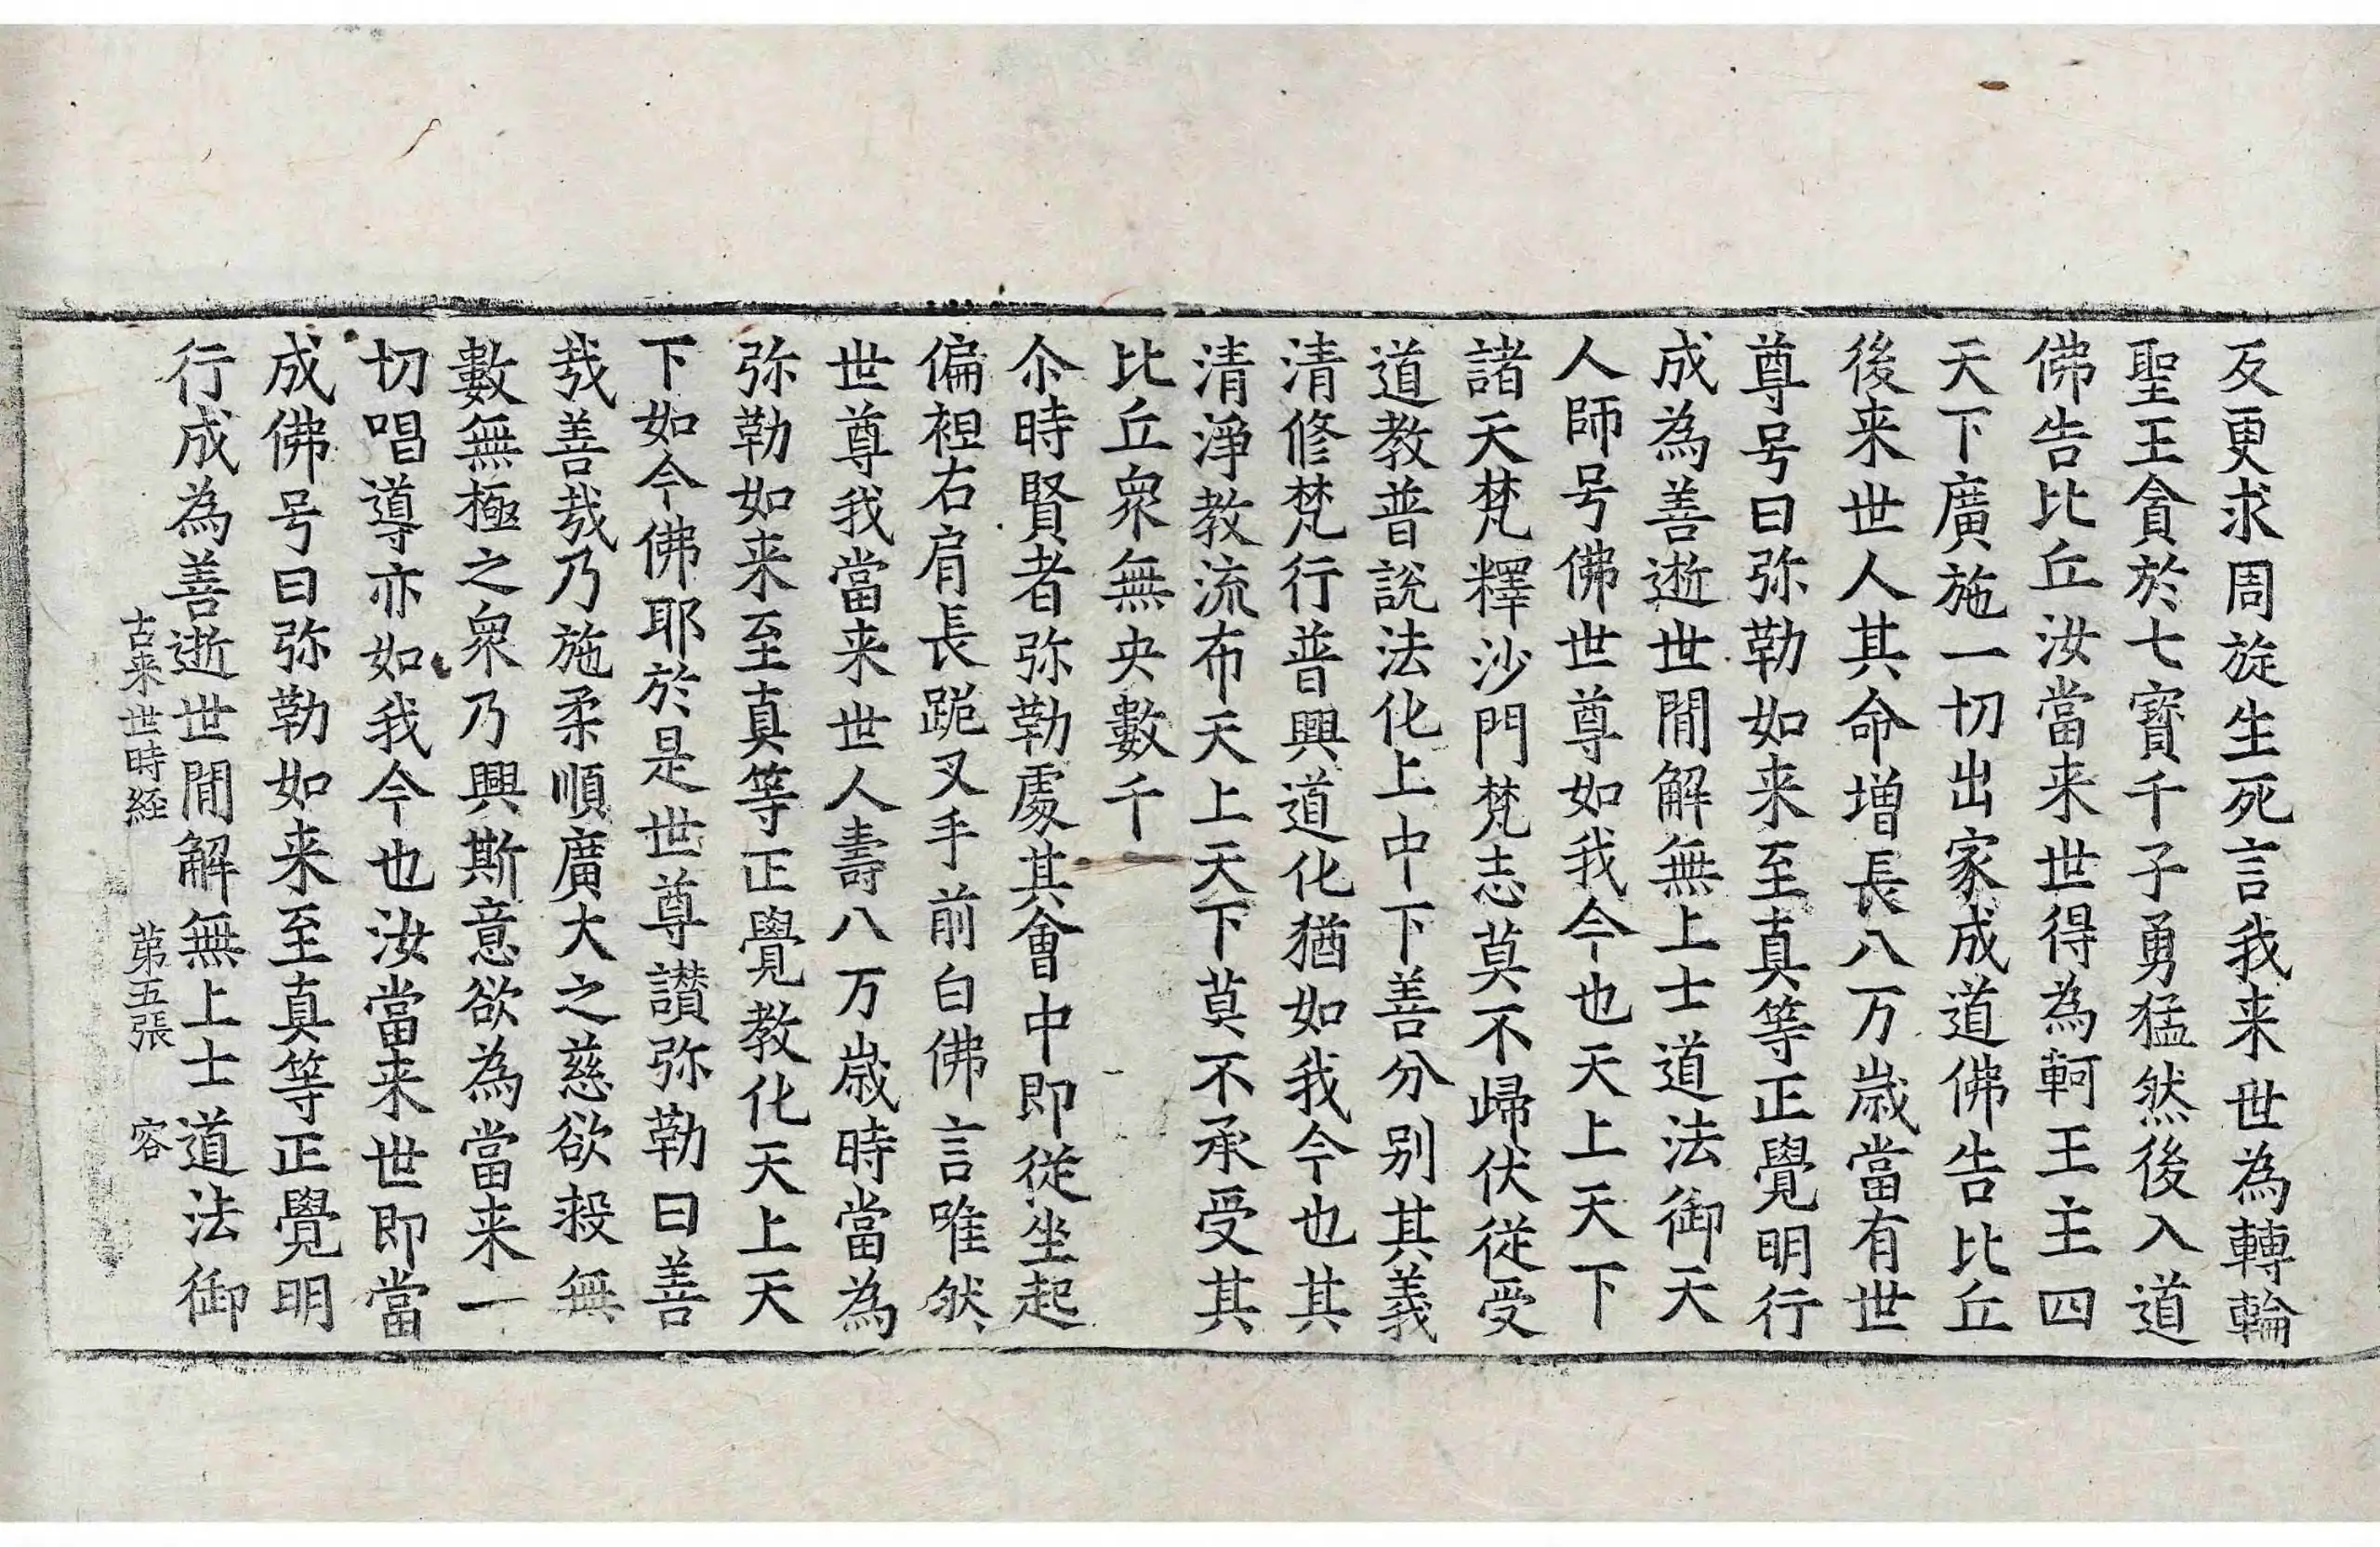 反更求周旋生死言我来世為轉輪
聖王貪於七寳千子勇猛然後入道
佛告比丘汝當来世得為軻王主四
天下廣施一切出家成道佛告比丘
後来世人其命增長八万歳當有世
尊号曰弥勒如来至真等正覺明行
成為善逝世閒解無上士道法御天
人師号佛世尊如我今也天上天下
諸天梵釋沙門梵志莫不歸伏從受
道教普說法化上中下善分别其義
清修梵行普興道化猶如我今也其
清淨教流布天上天下莫不承受其
比丘衆無央數千
尒時賢者弥勒處其會中即從坐起
偏袒右肩長跪叉手前白佛言唯然
世尊我當来世人壽八万歳時當為
弥勒如来至真等正覺教化天上天
下如今佛耶於是世尊讃弥勒曰善
哉善哉乃施柔順廣大之慈欲投無
數無極之衆乃興斯意欲為當来一
切唱導亦如我今也汝當来世即當
成佛号曰弥勒如来至真等正覺明
行成為善逝世閒解無上士道法御
古来世時経 苐五張 容